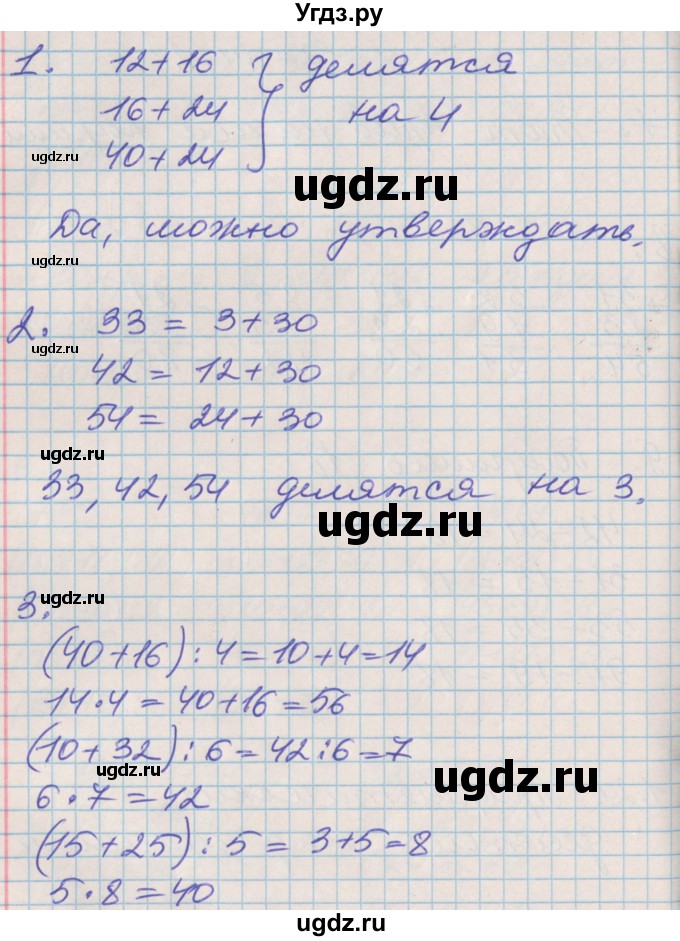 Угдз.ру
1. 12+16 } делятся
16+24 на 4
ugdz.ru
40+24
ugdz.ru
Да, можно утверждать.
ugdz.ru
2. 33 = 3+30
ugdz.ru
42 = 12+30
54 = 24+30
ugdz.ru
33, 42, 54 делятся на 3.
ugdz.ru
3.
ugdz.ru
(40+16):4=10+4=14
14·4=40+16=56
(10+32):6=42:6=7
ugdz.ru
ugdz.ru
6·7=42
(15+25):5=3+5=8
5·8=40
ugdz.ru